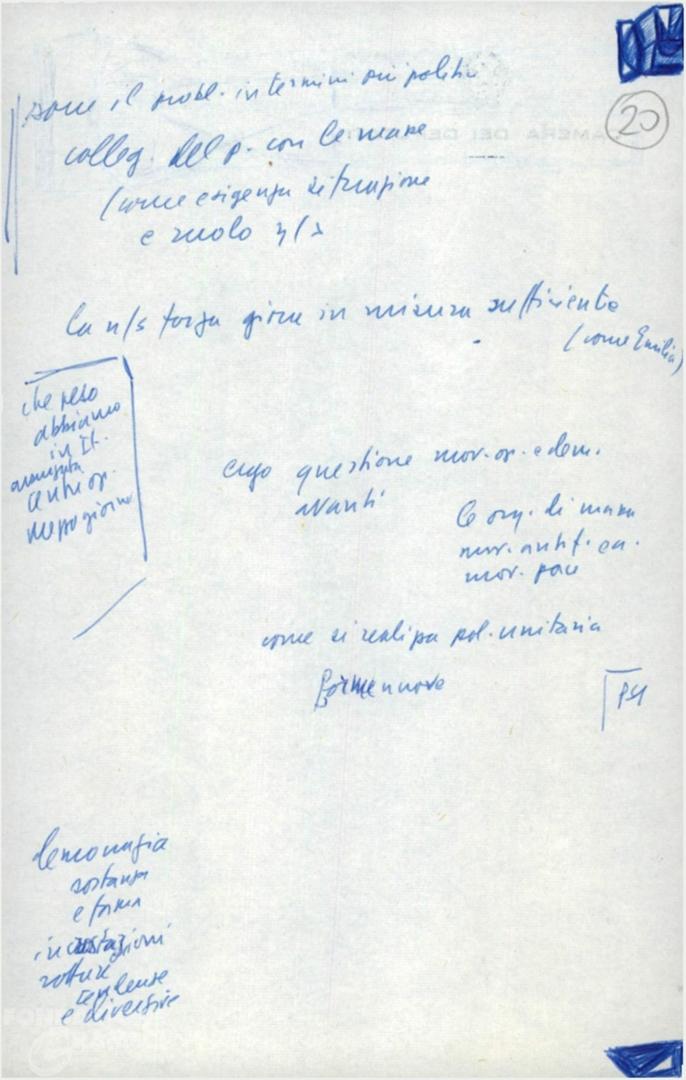 20
pone il probl. in termini più politici
colleg. del p. con le masse
(come esigenza situazione
e ruolo n/s
la n/s forza gioca in misura sufficiente
(come Emilia)
che peso
abbiamo
in It.
centr. op.
mezzogiorno
ergo questione mov. op. e dem.
avanti
le org. di massa
mov. antif.
mov. pace
come si realizza pol. unitaria
forme nuove
PSI
democrazia
sostanza
e forma
rotture
tendenze
e diversive